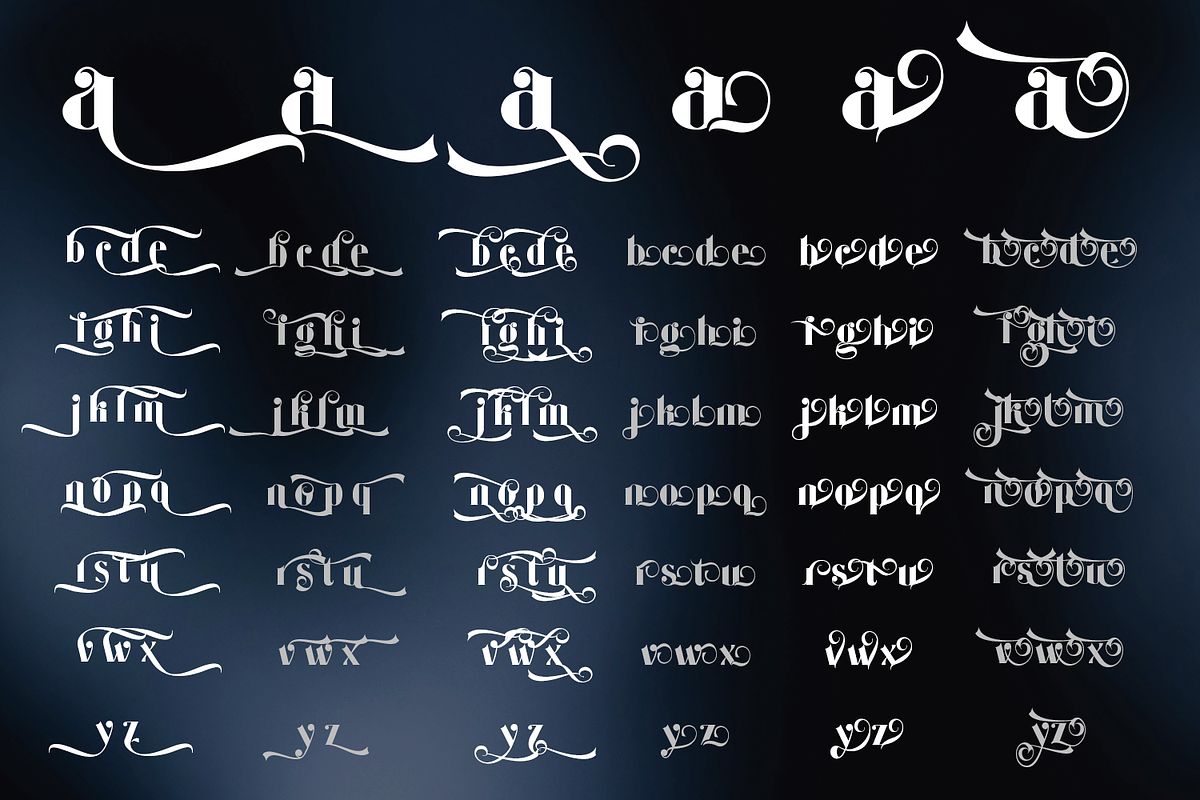 a a a a a a
bcde bcde bcde bcde bcde bcde
fghi fghi fghi fghi fghi fghi
jklm jklm jklm jklm jklm jklm
nopq nopq nopq nopq nopq nopq
rstu rstu rstu rstu rstu rstu
vwx vwx vwx vwx vwx vwx
yz yz yz yz yz yz